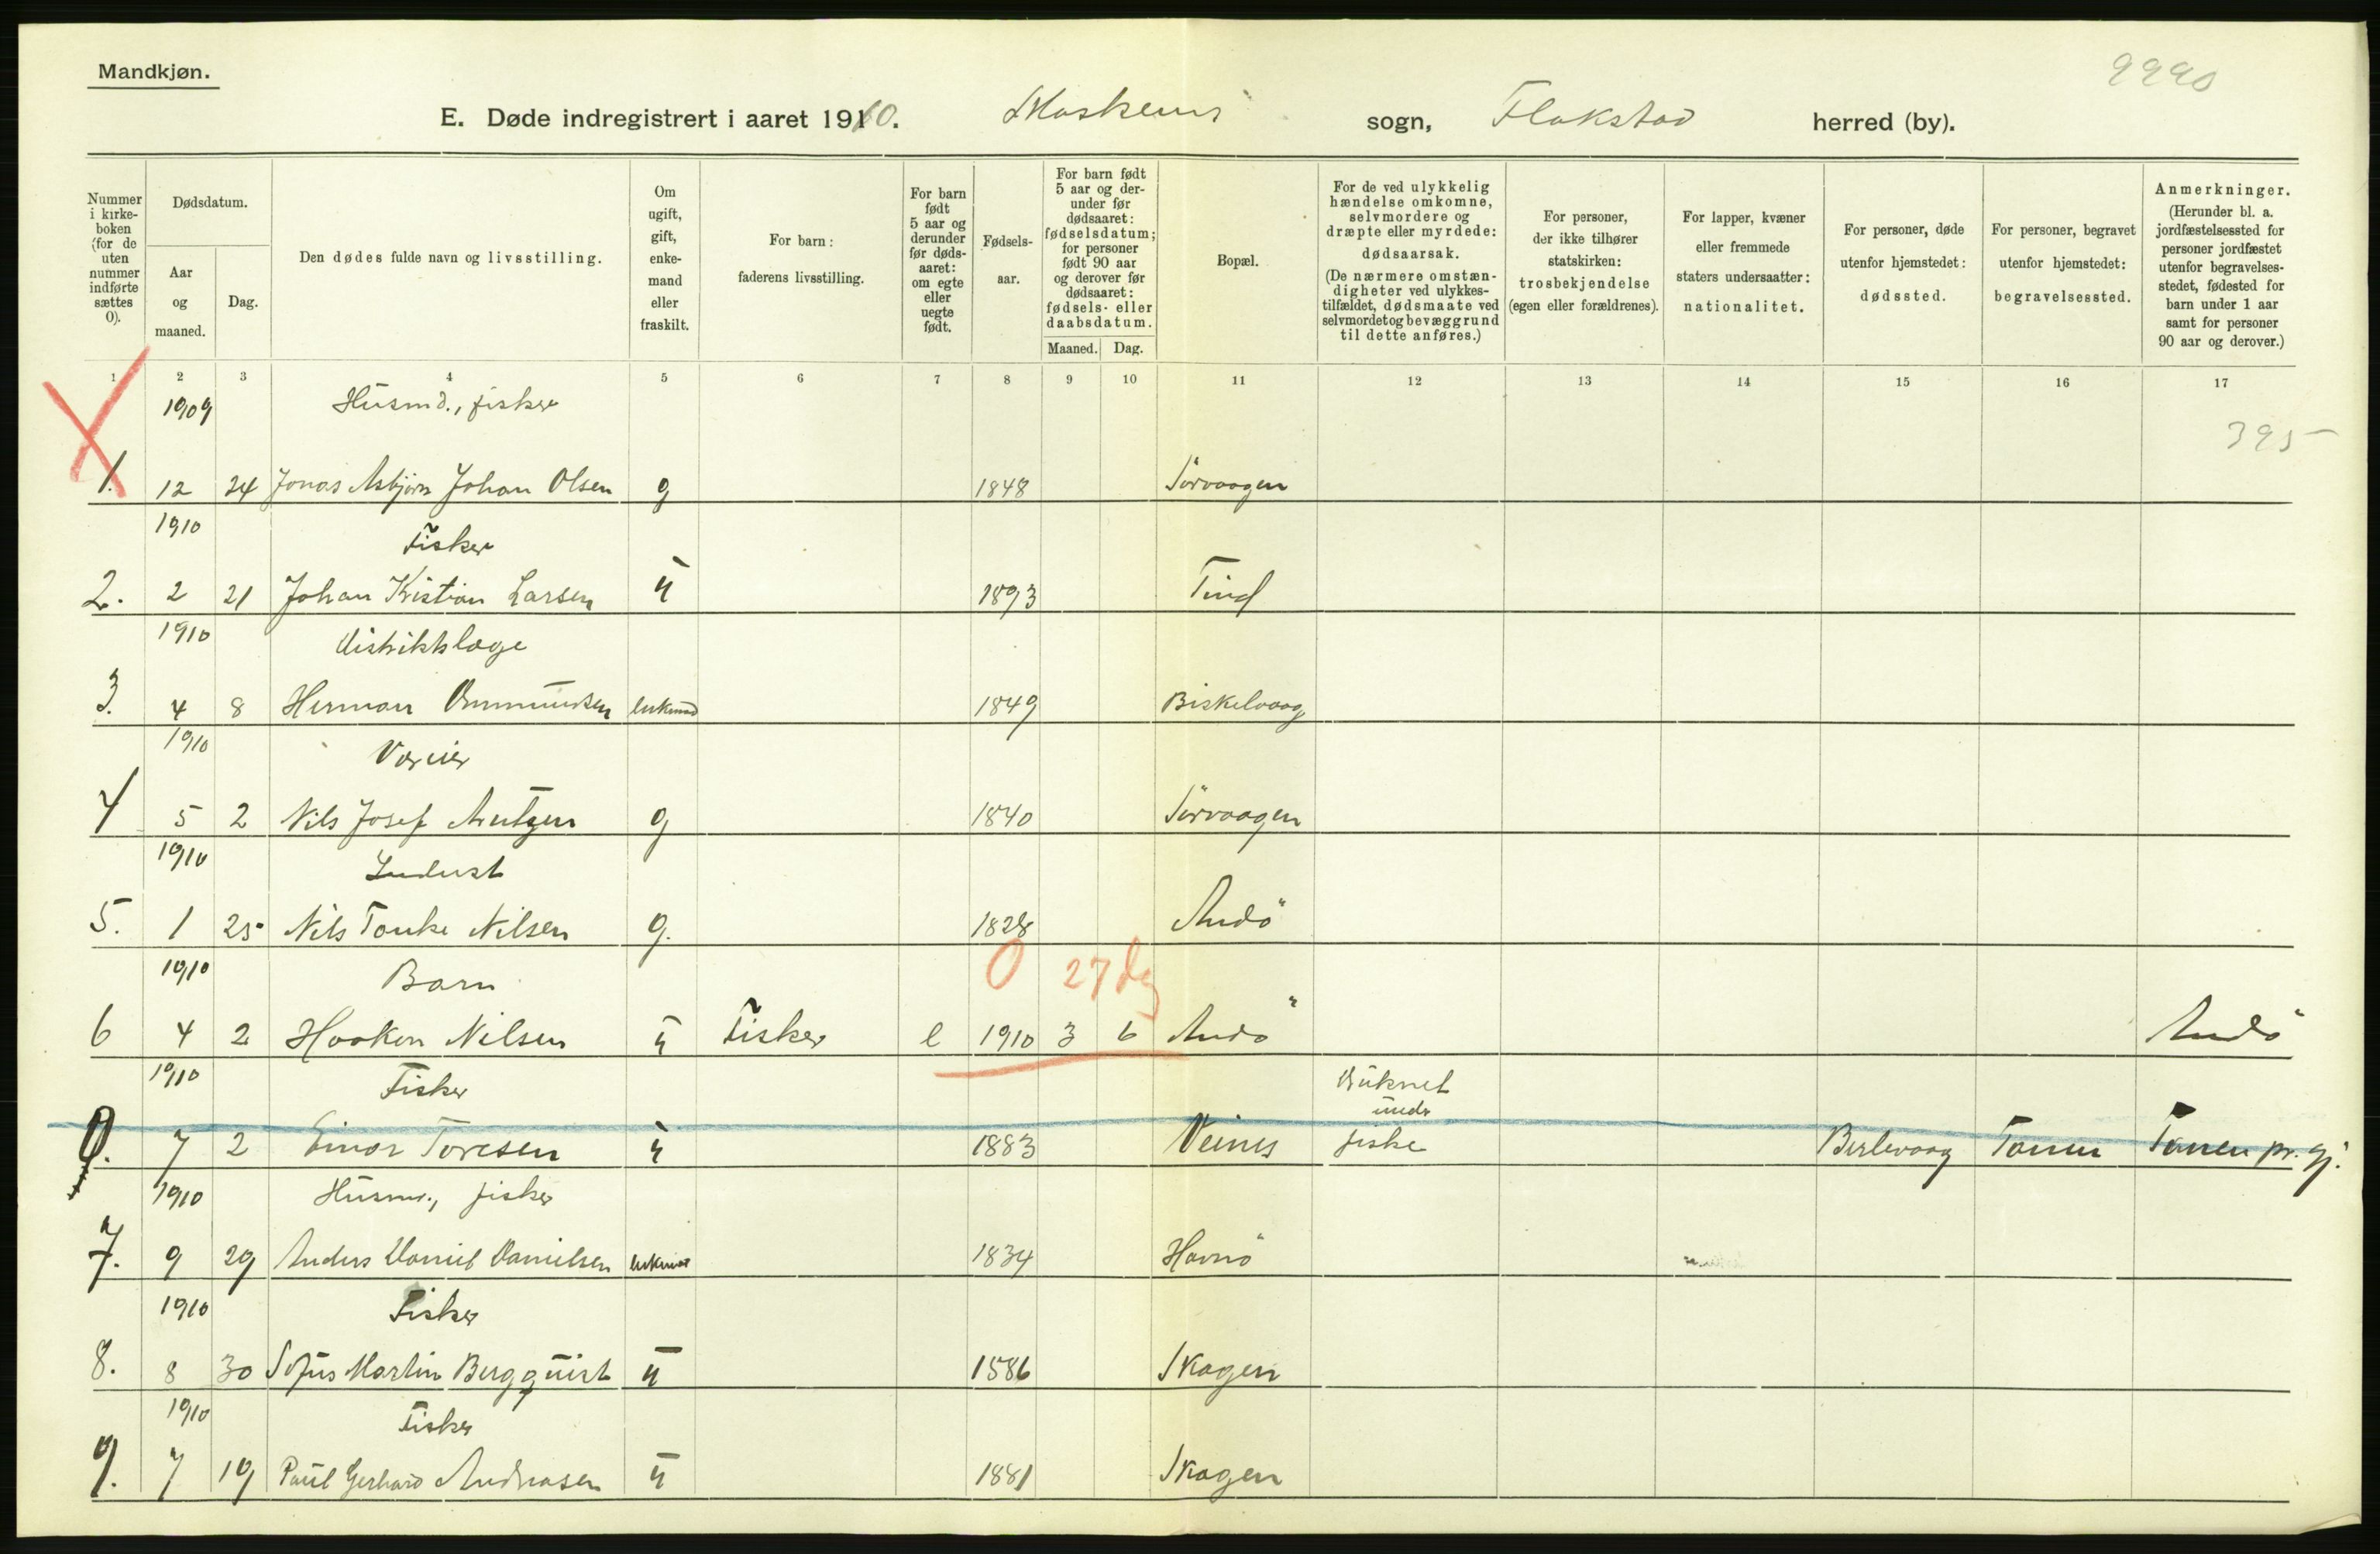 Mandkjøn.
9990
E. Døde indregistrert i aaret 1910. Moskenes sogn, Flakstad herred (by).
Nummer i kirkeboken (for de uten nummer indførte sættes 0).
Dødsdatum.
Aar og maaned.
Dag.
Den dødes fulde navn og livsstilling.
Om ugift, gift, enkemand eller fraskilt.
For barn: faderens livsstilling.
For barn født 5 aar og derunder før dødsaaret: om egte eller uegte født.
Fødselsaar.
For barn født 5 aar og derunder før dødsaaret: fødselsdatum; for personer født 90 aar og derover før dødsaaret: fødsels- eller daabsdatum.
Maaned. Dag.
Bopæl.
For de ved ulykkelig hændelse omkomne, selvmordere og dræpte eller myrdede: dødsaarsak. (De nærmere omstændigheter ved ulykkestilfældet, dødsmaate ved selvmordet og bevæggrund til dette anføres.)
For personer, der ikke tilhører statskirken: trosbekjendelse (egen eller forældrenes).
For lapper, kvæner eller fremmede staters undersaatter: nationalitet.
For personer, døde utenfor hjemstedet: dødssted.
For personer, begravet utenfor hjemstedet: begravelsessted.
Anmerkninger. (Herunder bl. a. jordfæstelsessted for personer jordfæstet utenfor begravelsesstedet, fødested for barn under 1 aar samt for personer 90 aar og derover.)
1 2 3 4 5 6 7 8 9 10 11 12 13 14 15 16 17
1909 Husmd., fisker
395
1. 12 24 Jonas Asbjørn Johan Olsen g 1848 Sörvaagen
1910 Fisker
2. 2 21 Johan Kristian Larsen u 1893 Tind
1910 Distriktslæge
3. 4 8 Herman Ommundsen enkmd 1849 Biskelvaag
1910 Væreier
4 5 2 Nils Josef Arntzen g 1840 Sörvaagen
1910 Inderst
5. 1 25 Nils Tonke Nilsen g. 1828 Andö
1910 Barn 0 27 dg
6 4 2 Haakon Nilsen u Fisker e 1910 3 6 Andö Andö
1910 Fisker Druknet under
0. 7 2 Einar Toresen u 1883 Veines fiske Berlevaag Tanen Tanen pr. gj.
1910 Husm., fisker
7. 9 29 Anders Daniel Danielsen enkmd 1834 Havnö
1910 Fisker
8. 8 30 Sofus Martin Bergquist u 1886 Skagen
1910 Fisker
9. 7 19 Paul Gerhard Andreasen u 1881 Skagen